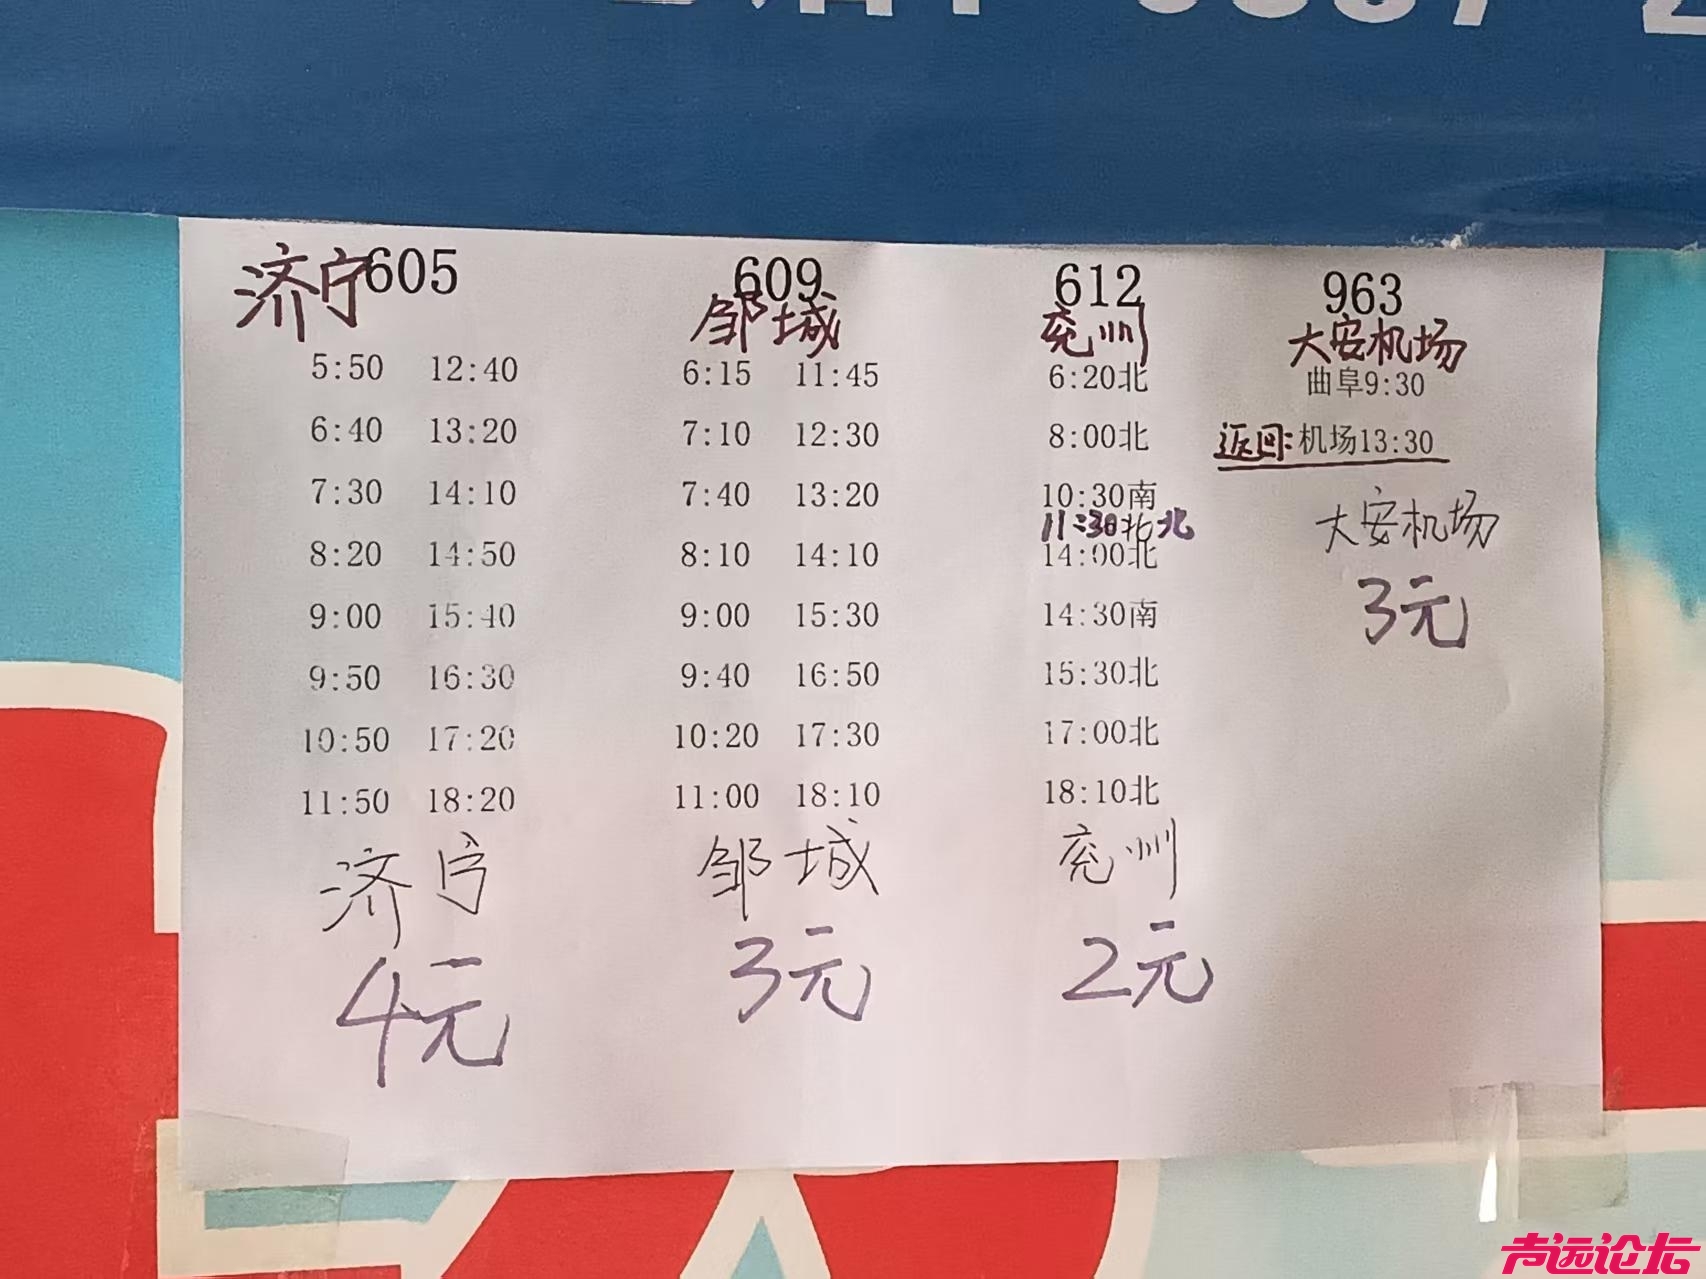 济宁605
5:50 12:40
6:40 13:20
7:30 14:10
8:20 14:50
9:00 15:40
9:50 16:30
10:50 17:20
11:50 18:20
济宁
4元
609
邹城
6:15 11:45
7:10 12:30
7:40 13:20
8:10 14:10
9:00 15:30
9:40 16:50
10:20 17:30
11:00 18:10
邹城
3元
612
兖州
6:20北
8:00北
10:30南
11:30北北
14:00北
14:30南
15:30北
17:00北
18:10北
兖州
2元
963
大安机场
曲阜9:30
返回:机场13:30
大安机场
3元
声远论坛